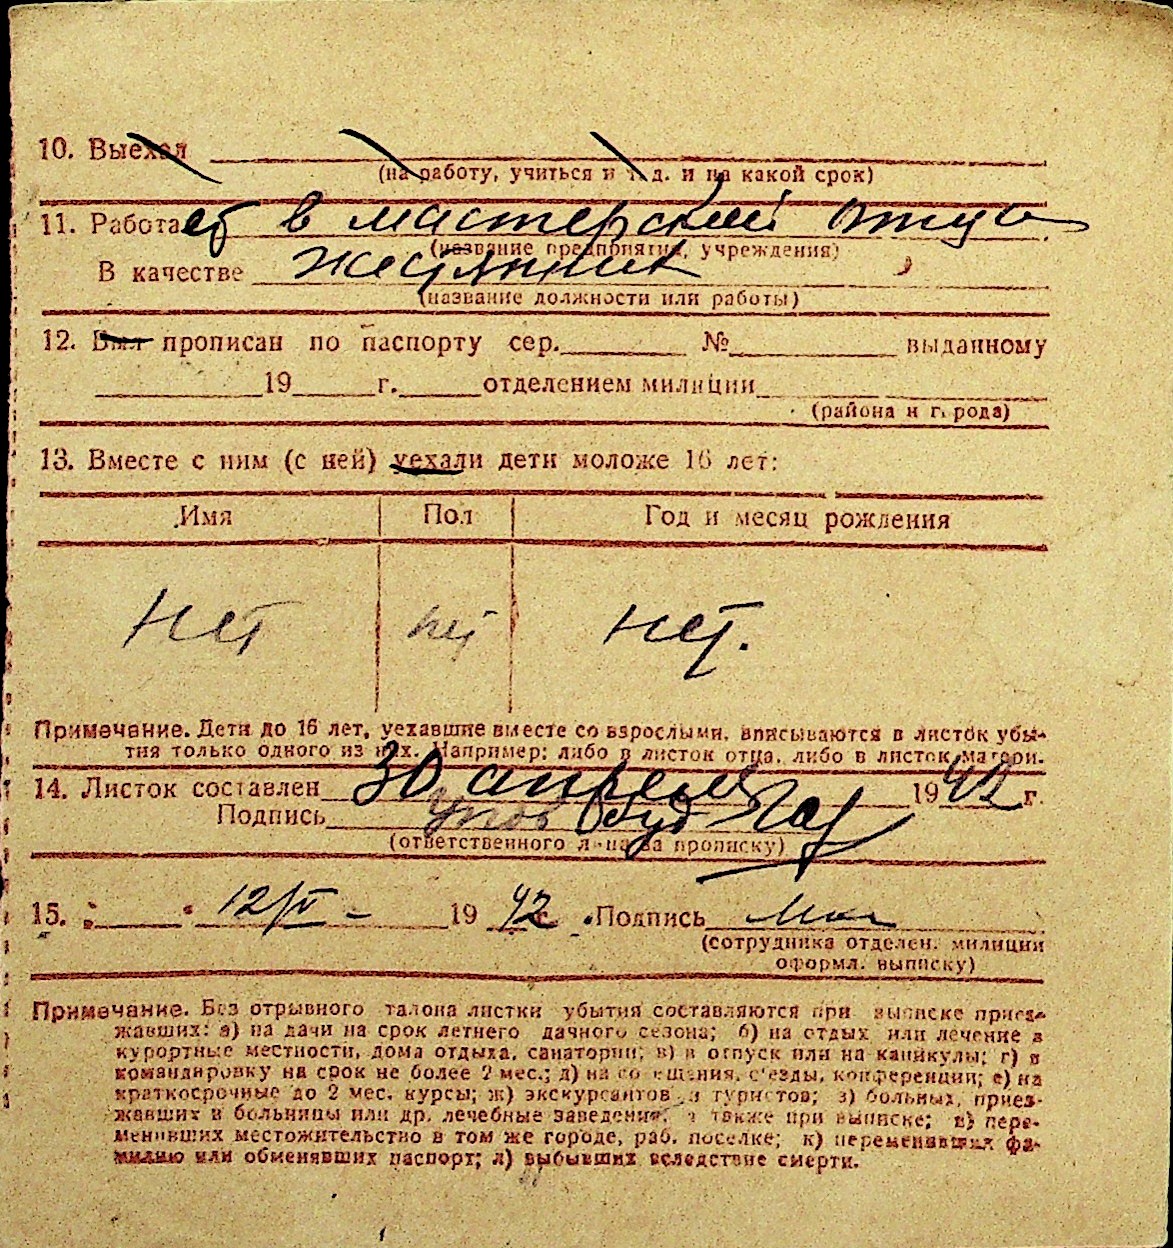 10. Выехал
(на работу, учиться и т. д. и на какой срок)
11. Работает в мастерской
(название предприятия, учреждения)
В качестве жестянник
(название должности или работы)
12. Был прописан по паспорту сер. № выданному
19 г. отделением милиции
(района и города)
13. Вместе с ним (с ней) уехали дети моложе 16 лет:
Имя Пол Год и месяц рождения
нет нет нет.
Примечание. Дети до 16 лет, уехавшие вместе со взрослыми, вписываются в листок убы-
тия только одного из них. Например: либо в листок отца, либо в листок матери.
14. Листок составлен 30 апреля 1942 г.
Подпись
(ответственного лица за прописку)
15. 12/V - 1942 г. Подпись
(сотрудника отделен. милиции
оформл. выписку)
Примечание. Без отрывного талона листки убытия составляются при выписке приез-
жавших: а) на дачи на срок летнего дачного сезона; б) на отдых или лечение в
курортные местности, дома отдыха, санатории; в) в отпуск или на каникулы; г) в
командировку на срок не более 2 мес.; д) на совещания, с'езды, конференции; е) на
краткосрочные до 2 мес. курсы; ж) экскурсантов и туристов; з) больных, приез-
жавших в больницы или др. лечебные заведения, а также при выписке; и) пере-
менивших местожительство в том же городе, раб. поселке; к) переменивших фа-
милию или обменявших паспорт; л) выбывших вследствие смерти.